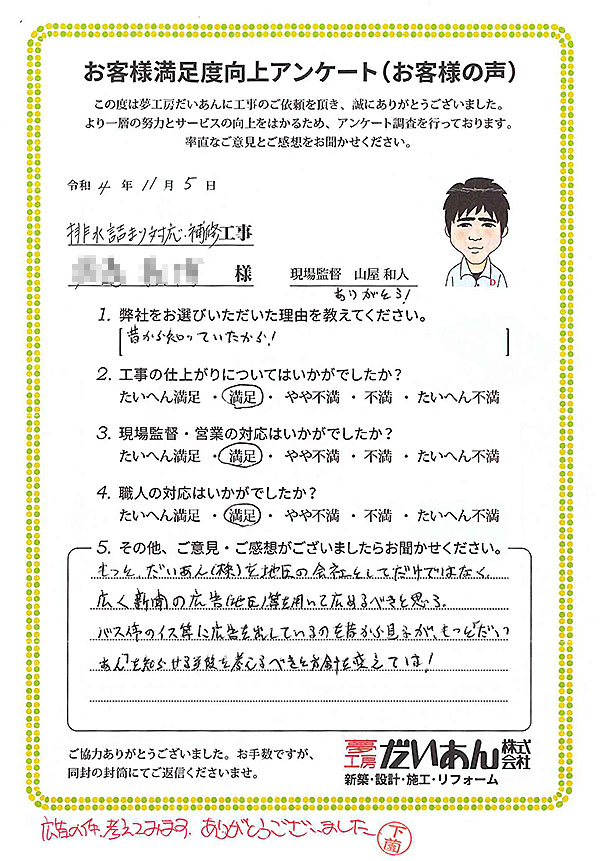 お客様満足度向上アンケート（お客様の声）
この度は夢工房だいあんに工事のご依頼を頂き、誠にありがとうございました。
より一層の努力とサービスの向上をはかるため、アンケート調査を行っております。
率直なご意見とご感想をお聞かせください。
令和 4 年 11 月 5 日
排水詰まり対応・補修工事
様
現場監督 山屋 和人
ありがとう！
1. 弊社をお選びいただいた理由を教えてください。
昔から知っていたから！
2. 工事の仕上がりについてはいかがでしたか？
たいへん満足 ・ 満足 ・ やや不満 ・ 不満 ・ たいへん不満
3. 現場監督・営業の対応はいかがでしたか？
たいへん満足 ・ 満足 ・ やや不満 ・ 不満 ・ たいへん不満
4. 職人の対応はいかがでしたか？
たいへん満足 ・ 満足 ・ やや不満 ・ 不満 ・ たいへん不満
5. その他、ご意見・ご感想がございましたらお聞かせください。
もっと、だいあん(株)を地区の会社としてだけではなく、
広く新聞の広告(地区)等を用いて広めるべきと思る。
バス停のイス等に広告を出しているのを昔から見るが、もっと「だいつ
あん」を知らせる手段を考えるべきと方針を変えては！
ご協力ありがとうございました。お手数ですが、
同封の封筒にてご返信くださいませ。
夢工房 だいあん 株式会社
新築・設計・施工・リフォーム
広告の件、考えてみます。ありがとうございました
下薗